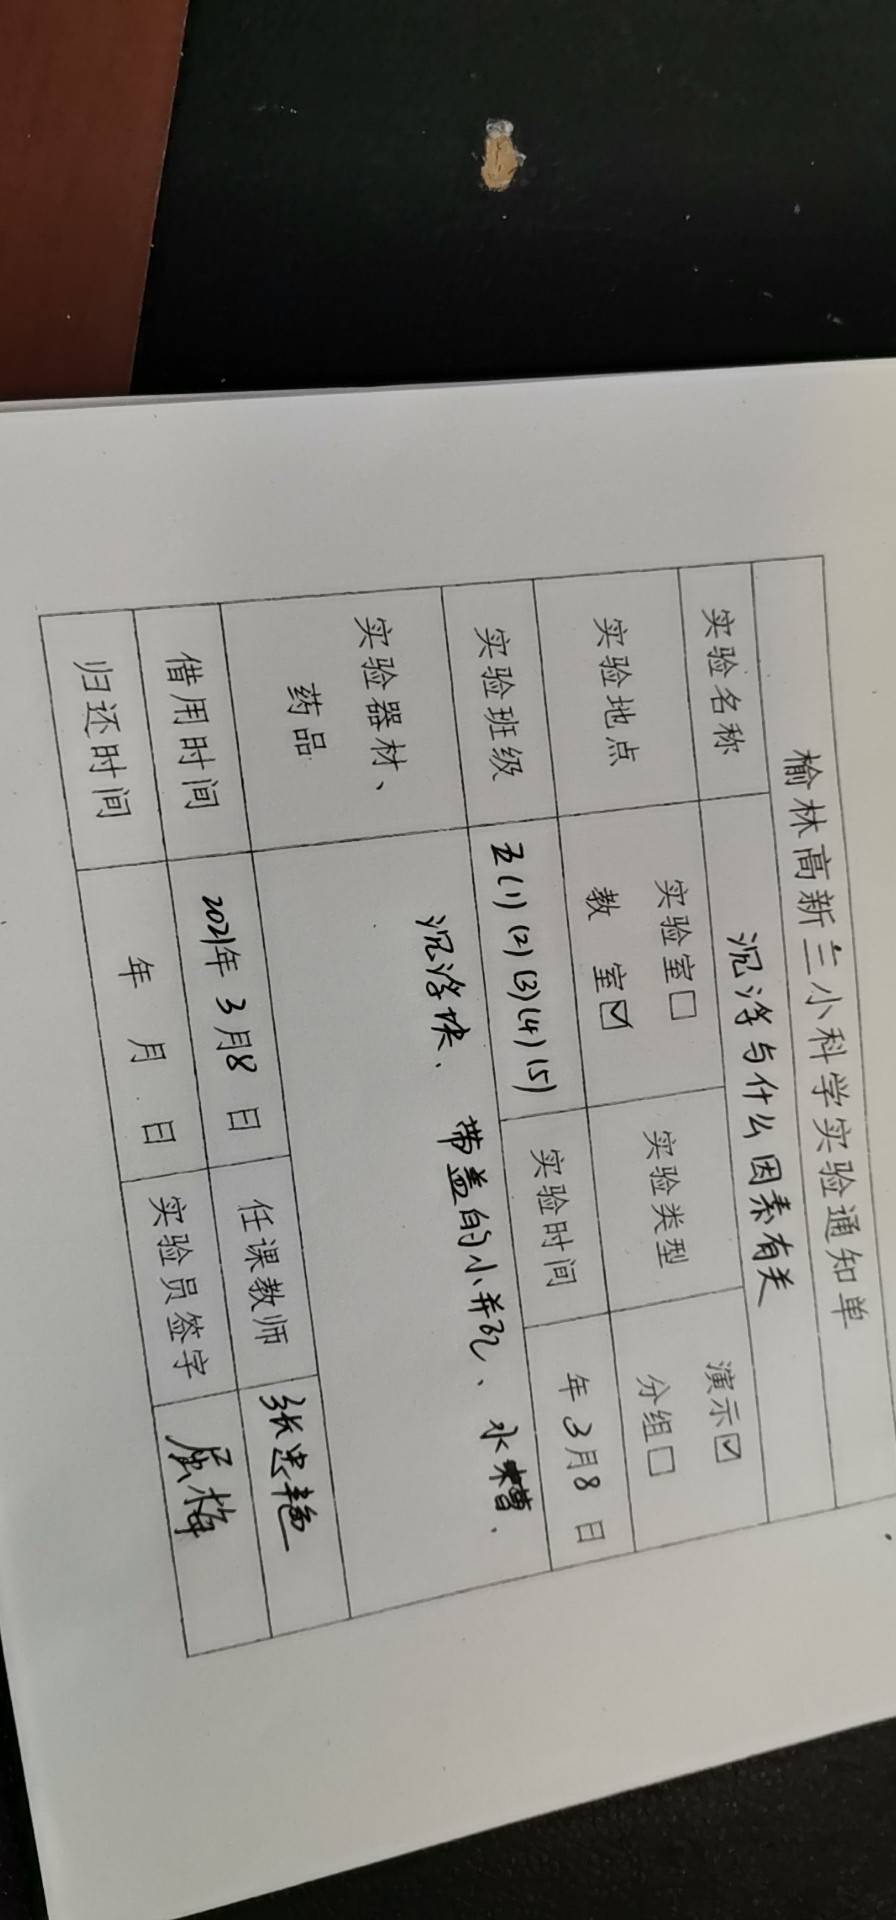 榆林高新三小科学实验通知单
实验名称 沉浮与什么因素有关
实验地点 实验室□ 教 室☑ 实验类型 演示☑ 分组□
实验班级 五(1)(2)(3)(4)(5) 实验时间 年3月8日
实验器材、药品 沉浮块、带盖的小瓶、水槽.
借用时间 2021年3月8日 任课教师 张忠艳
归还时间 年 月 日 实验员签字 屈梅